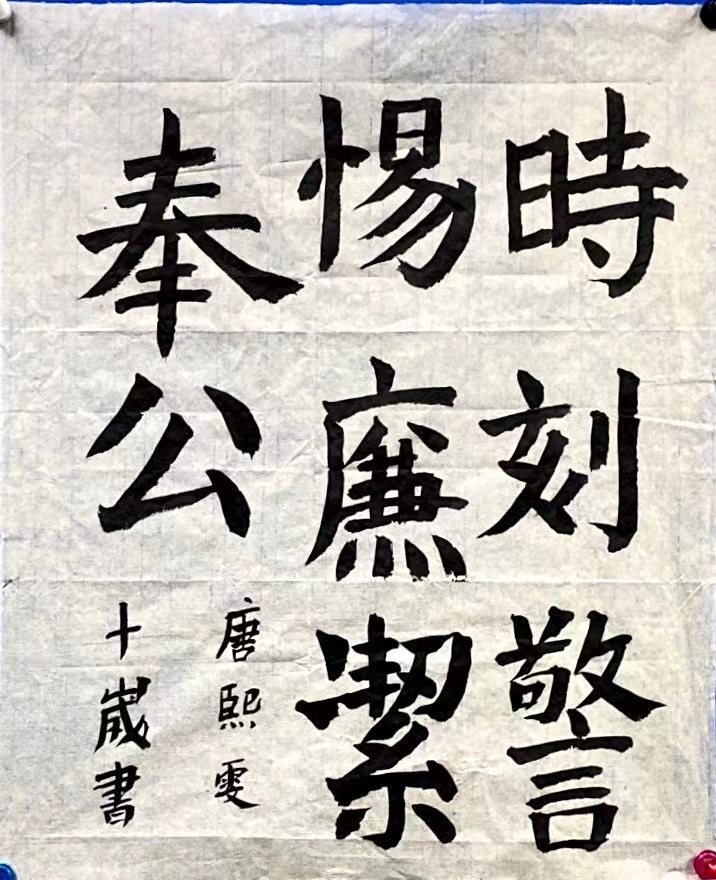 時刻警
惕廉絜
奉公
唐熙雯
十歲書